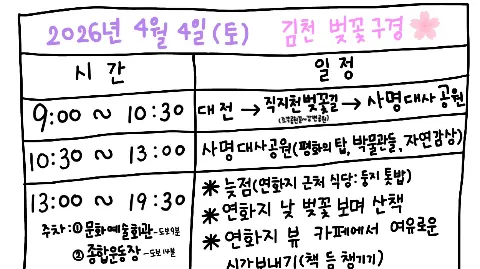 2026년 4월 4일(토) 김천 벚꽃구경
시간 일정
9:00 ~ 10:30 대전 → 직지천벚꽃길 → 사명대사공원
10:30 ~ 13:00 사명대사공원(평화의 탑, 박물관들, 자연감상)
13:00 ~ 19:30 * 늦점(연화지 근처 식당: 통지 톳밥)
* 연화지 낮 벚꽃 보며 산책
주차: ① 문화예술회관 - 도보9분 * 연화지 뷰 카페에서 여유로운
② 종합운동장 - 도보14분 시간보내기(책 등 챙기기)